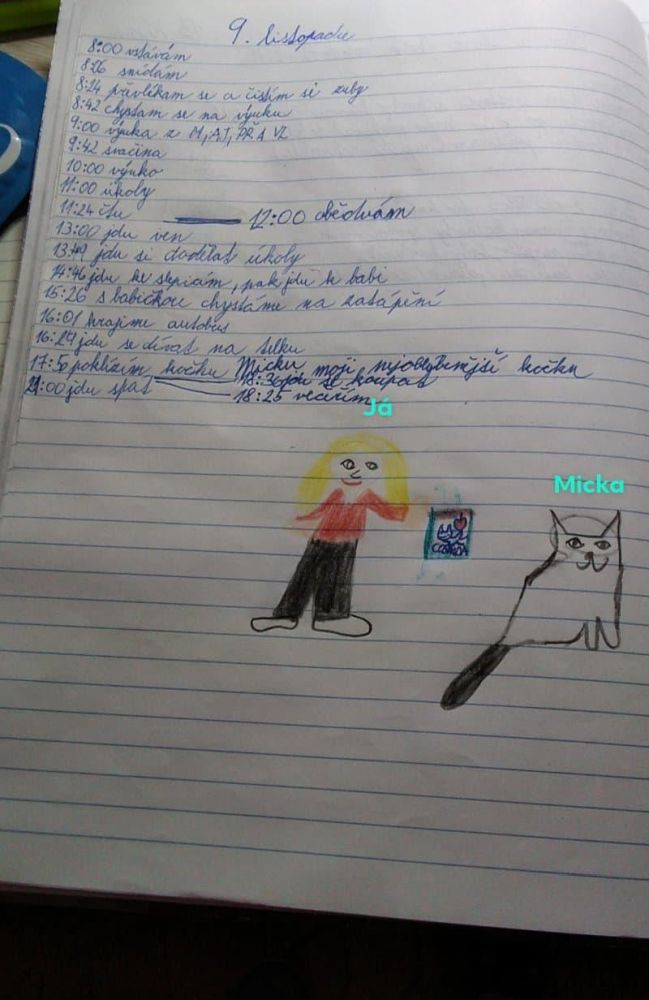 9. listopadu
8:00 vstávám
8:26 snídám
8:24 převlíkam se a čistím si zuby
8:42 chystam se na výuku
9:00 výuka z M, AJ, PŘ A VZ
9:42 svačina
10:00 výuka
11:00 úkoly
11:24 čtu 12:00 obědvám
13:00 jdu ven
13:49 jdu si dodělat úkoly
14:46 jdu ke slepicám, pak jdu k babi
15:26 s babičkou chystáme na zatápění
16:01 hrajime autobus
16:24 jdu se dívat na telku
17:50 poklízím kočku Micku moji nejoblíbenější kočku
18:36 jdu se koupat
21:00 jdu spat 18:25 večeřím
Já
Micka